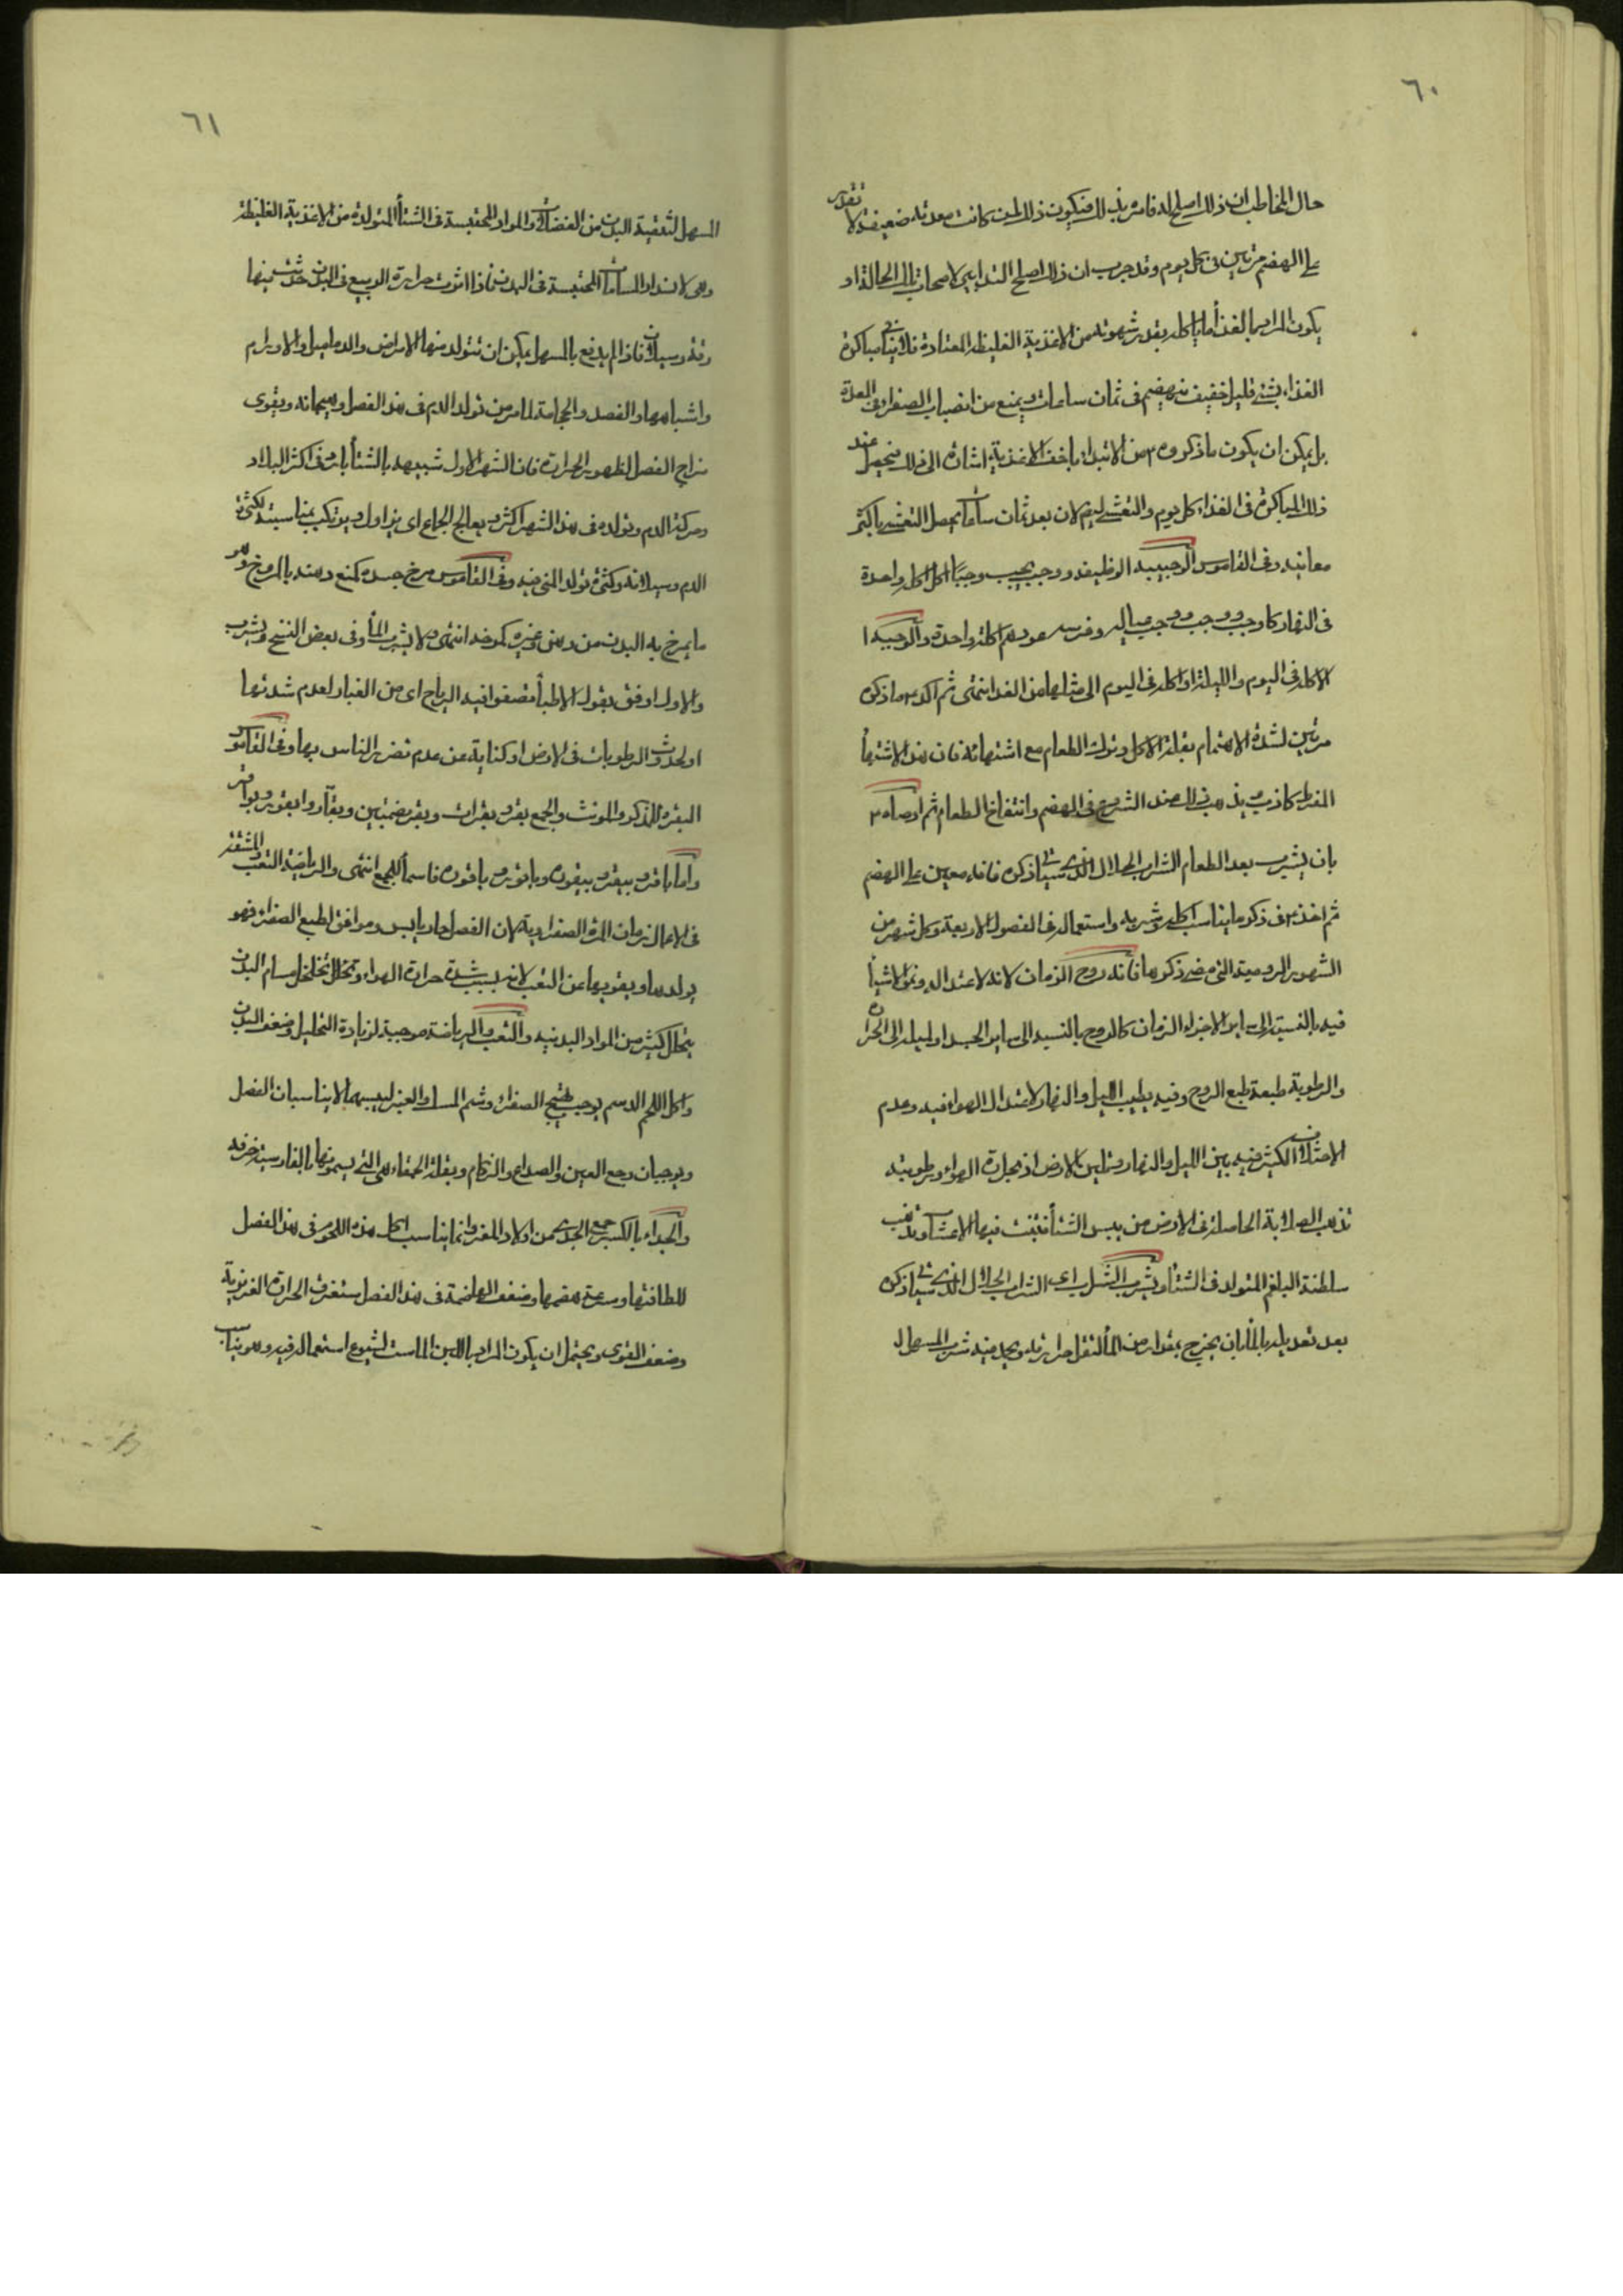 ٦٠
حال المخاطب ان ذلك اصلح له فامره بذلك فيكون ذلك لمن كانت معدته ضعيفة لا تقدر
على الهضم مرتين في كل يوم وقد جرب ان ذلك اصلح التدابير لاصحاب تلك الحالة او
يكون المراد بالغذاء ما ياكله بقدر شهوته من الاغذية الغليظة المعتادة فلا ينافي مباكرة
الغذاء بشئ قليل خفيف ينهضم في ثمان ساعات ويمنع من انصباب الصفراء في المعدة
بل يمكن ان يكون ما ذكره من الابتداء باخف الاغذية اشارة الى ذلك فيحصل عند
ذلك المباكرة في الغذاء كل يوم والتعشي ليوم لان بعد ثمان ساعات يحصل التعشي باكثر
معانيه وفي القاموس الوجيبة الوظيفة ووجب يجب وجبا اكل اكلة واحدة
في النهار كاوجب ووجب ووجب عياله وفرسه عودهم اكلة واحدة والوجبة
الاكلة في اليوم والليلة او اكلة في اليوم الى مثلها من الغد انتهى ثم اكد ما ذكره
مرتين لشدة الاهتمام بقلة الاكل وترك الطعام مع اشتهائه فان هذا الاشتهاء
المفرط كاذب يذهب ذلك عند الشروع في الهضم وانتفاخ الطعام ثم اوصاه
بان يشرب بعد الطعام الشراب الحلال الذي سياتي ذكره فانه معين على الهضم
ثم اخذ في ذكر ما يناسب اكله وشربه واستعماله في الفصول الاربعة وكل شهر من
الشهور الرومية التي مضى ذكرها فانه روح الزمان لانه لاعتداله ونمو الاشياء
فيه بالنسبة الى ساير الاجزاء الزمان كالروح بالنسبة الى ساير الجسد او لميله الى الحرارة
والرطوبة طبعه طبع الروح وفيه يطيب الليل والنهار لاعتدال الهواء فيه وعدم
الاختلاف الكثير فيه بين الليل والنهار وتلين الارض اذ بحرارة الهواء ورطوبته
تذهب الصلابة الحاصلة في الارض من يبس الشتاء فتنبت فيها الاعشاب وتذهب
سلطنة البلغم المتولد في الشتاء ويشرب الشراب اي الشراب الحلال الذي سياتي ذكره
بعد تعديله بالماء بان يخرج بمقدار من الماء لتقل حرارته ويحمد فيه شرب المسهل
٦١
المسهل لتنقية البدن من الفضلات والمواد المحتبسة في الشتاء المتولدة من الاغذية الغليظة
وهي لانسداد المسامات المحتبسة في البدن فاذا اثرت حرارة الربيع في البدن حدثت فيها
رقة وسيلان فاذا لم يدفع بالمسهل يمكن ان تتولد منها الامراض والدماميل والاورام
واشباهها والفصد والحجامة لما مر من تولد الدم في هذا الفصل وهيجانه ويقوى
مزاج الفصل لظهور الحرارة فان الشهر الاول شبيهه بالشتاء بارد في اكثر البلاد
وحركة الدم وتولده في هذا الشهر اكثر ويعالج الجماع اي يزاول ويرتكب بمناسبته لكثرة
الدم وسيلانه وكثرة تولد المني فيه وفي القاموس مرخ جسده كمنع دهنه بالمروخ وهو
ما يمرخ به البدن من دهن وغيره كمرخه انتهى ولا يشرب الماء وفي بعض النسخ ويشرب
والاول اوفق بقول الاطباء فتصفو فيه الرياح اي من الغبار لعدم شدتها
او لحدوث الرطوبات في الارض او كناية عن عدم تضرر الناس بها وفي القاموس
البقرة للمذكر والمونث والجمع بقر وبقرات وبقر بضمتين وبقار وابقور وبواقر
واما باقر وبيقر وبيقور وباقور وباقورة فاسماء للجمع انتهى والرياضة التعب والمشقة
في الاعمال زمان المرة الصفراوية لان الفصل حار يابس وموافق لطبع الصفراء فهو
يولدها ويقويها عن التعب لانه بسبب شدة حرارة الهواء وتخلخل مسام البدن
يتحلل كثير من المواد البدنية والتعب والرياضة موجبة لزيادة التحليل وضعف البدن
واكل اللحم الدسم يوجب تهيج الصفراء وشم المسك والعنبر ليبسهما لا يناسبان الفصل
ويوجبان وجع العين والصداع والزكام وبقلة الحمقاء هي التي يسمونها بالفارسية خرفه
والجداء بالكسر جمع الجدي من اولاد المعز وانما يناسب اكل هذه اللحوم في هذا الفصل
للطافتها وسرعة هضمها وضعف الهاضمة في هذا الفصل لتفرق الحرارة الغريزية
وضعف القوى ويحتمل ان يكون المراد باللبن الماست لشيوع استعماله فيه وهو يناسب